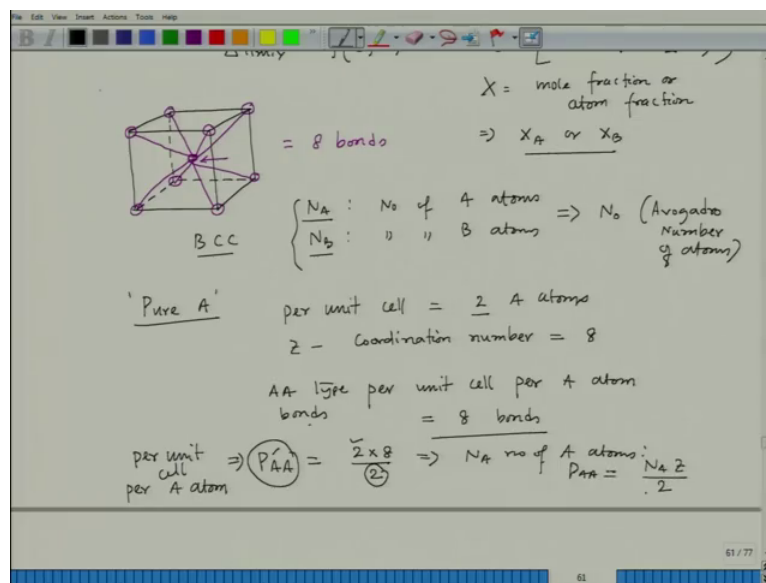 File Edit View Insert Actions Tools Help
B I
X = mole fraction or
atom fraction
=> X_A or X_B
= 8 bonds
BCC
N_A : No of A atoms => N_0 (Avogadro
N_B : " " B atoms Number
of atoms)
'Pure A' per unit cell = 2 A atoms
Z - Coordination number = 8
AA Type per unit cell per A atom
bonds = 8 bonds
per unit cell per A atom => P_AA = 2 x 8 / 2 => N_A no of A atoms:
P_AA = N_A Z / 2
61 / 77
61